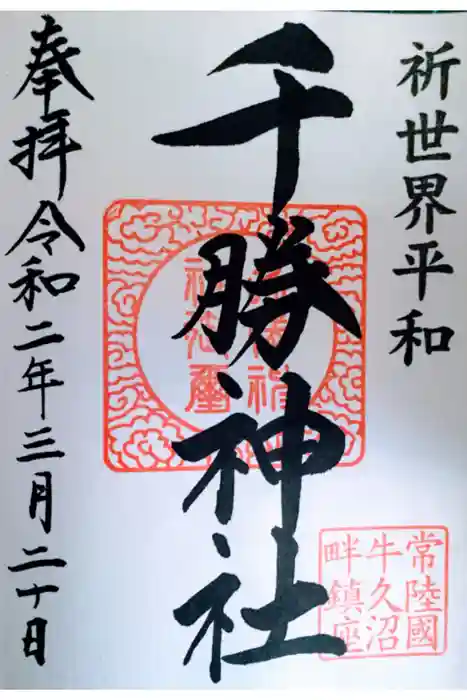 祈世界平和
千勝神社
奉拝 令和二年三月二十日
常陸國
牛久沼
畔鎮座